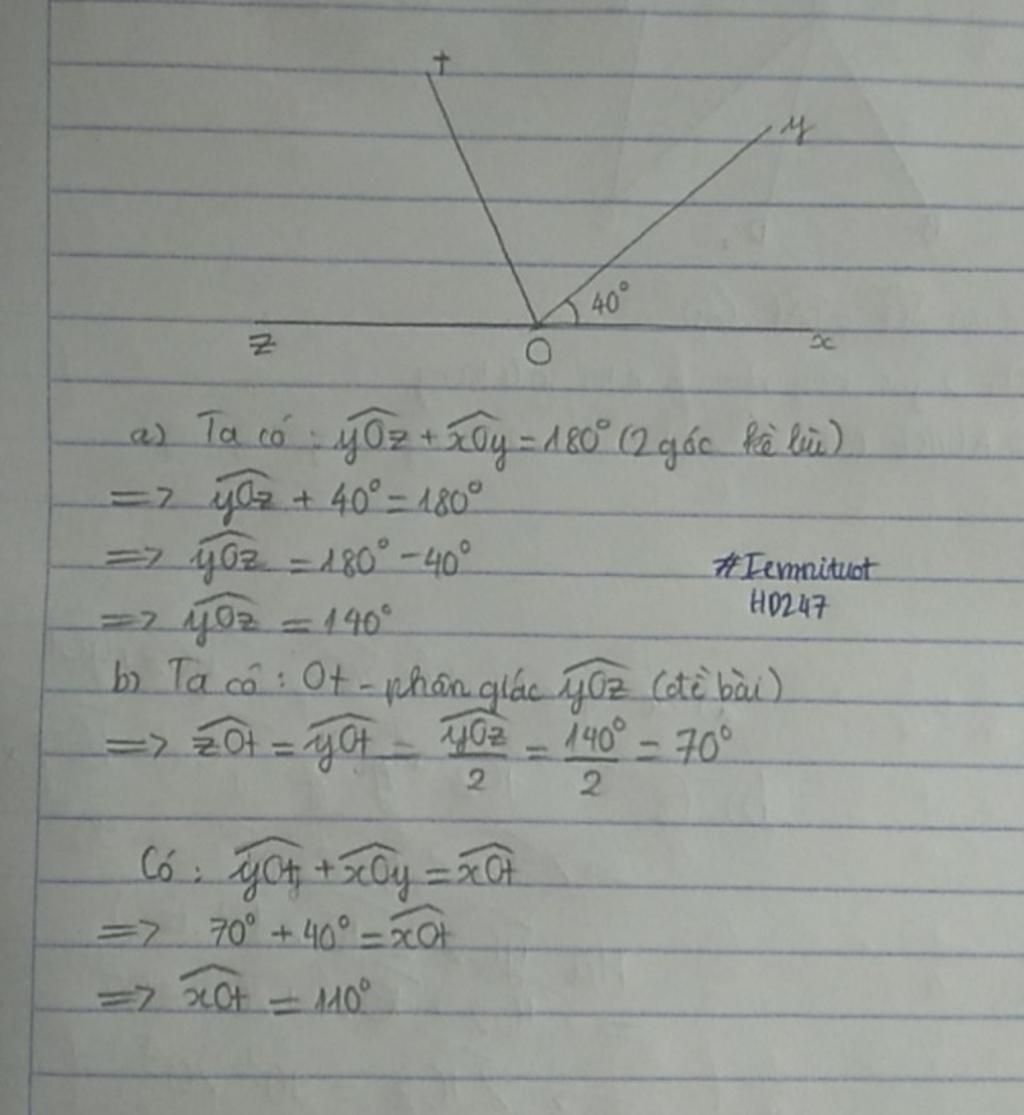 t
y
40°
z
O
x
a) Ta có : yOz + xOy = 180° (2 góc kề bù)
=> yOz + 40° = 180°
=> yOz = 180° - 40°
#Iemnituot
=> yOz = 140°
HD247
b) Ta có : Ot - phân giác yOz (đề bài)
=> zOt = yOt = yOz/2 = 140°/2 = 70°
Có : yOt + xOy = xOt
=> 70° + 40° = xOt
=> xOt = 110°